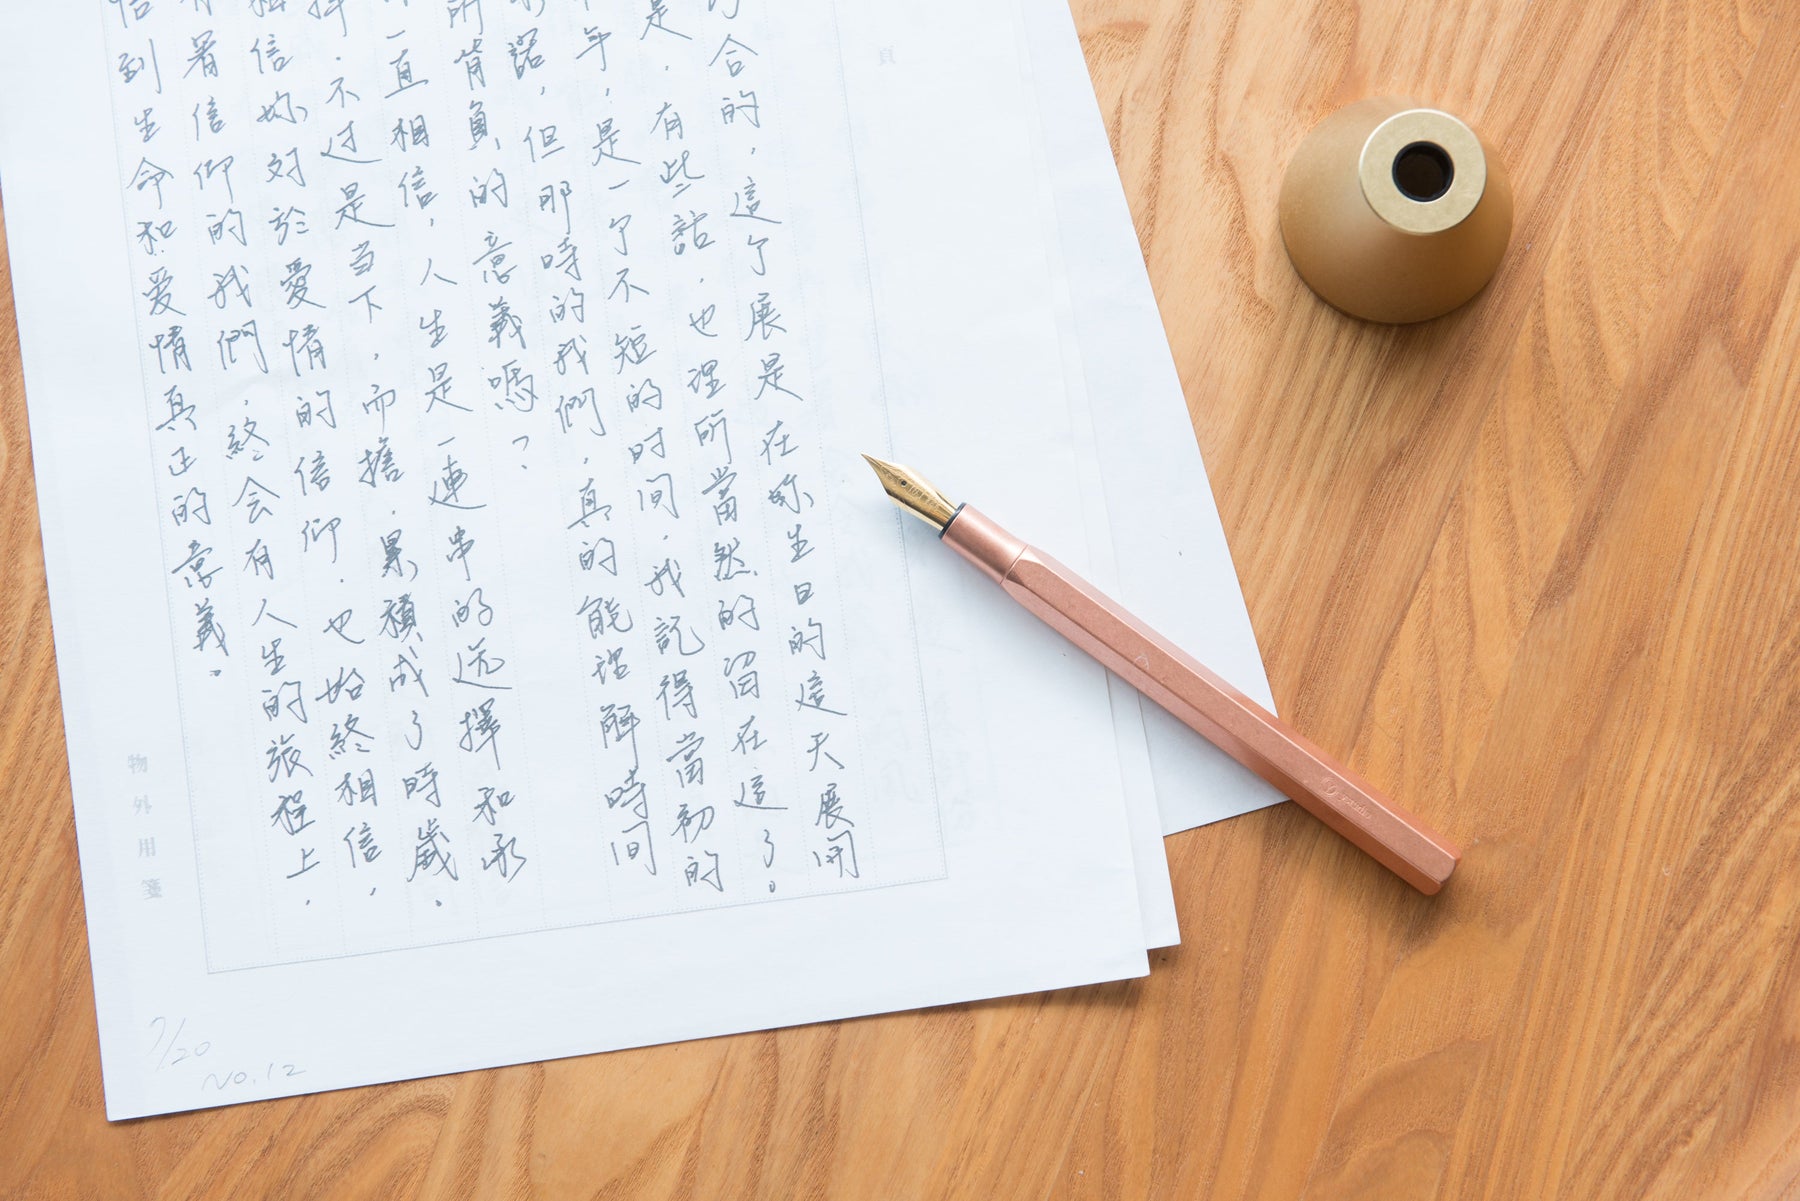 頁
合的，這个展是在妳生日的這天展開
是，有些話，也理所當然的留在這了。
年，是一个不短的时间，我記得當初的
諾，但那時的我們，真的能理解時间
所背負的意義嗎？
一直相信，人生是一連串的选擇和承
擇，不过是当下，而擔，累積成了時歲。
相信妳对於愛情的信仰，也始終相信，
有着信仰的我們，終会有人生的旅程上，
到生命和爱情真正的意義。
物外用箋
7/20
NO.12
ystudio